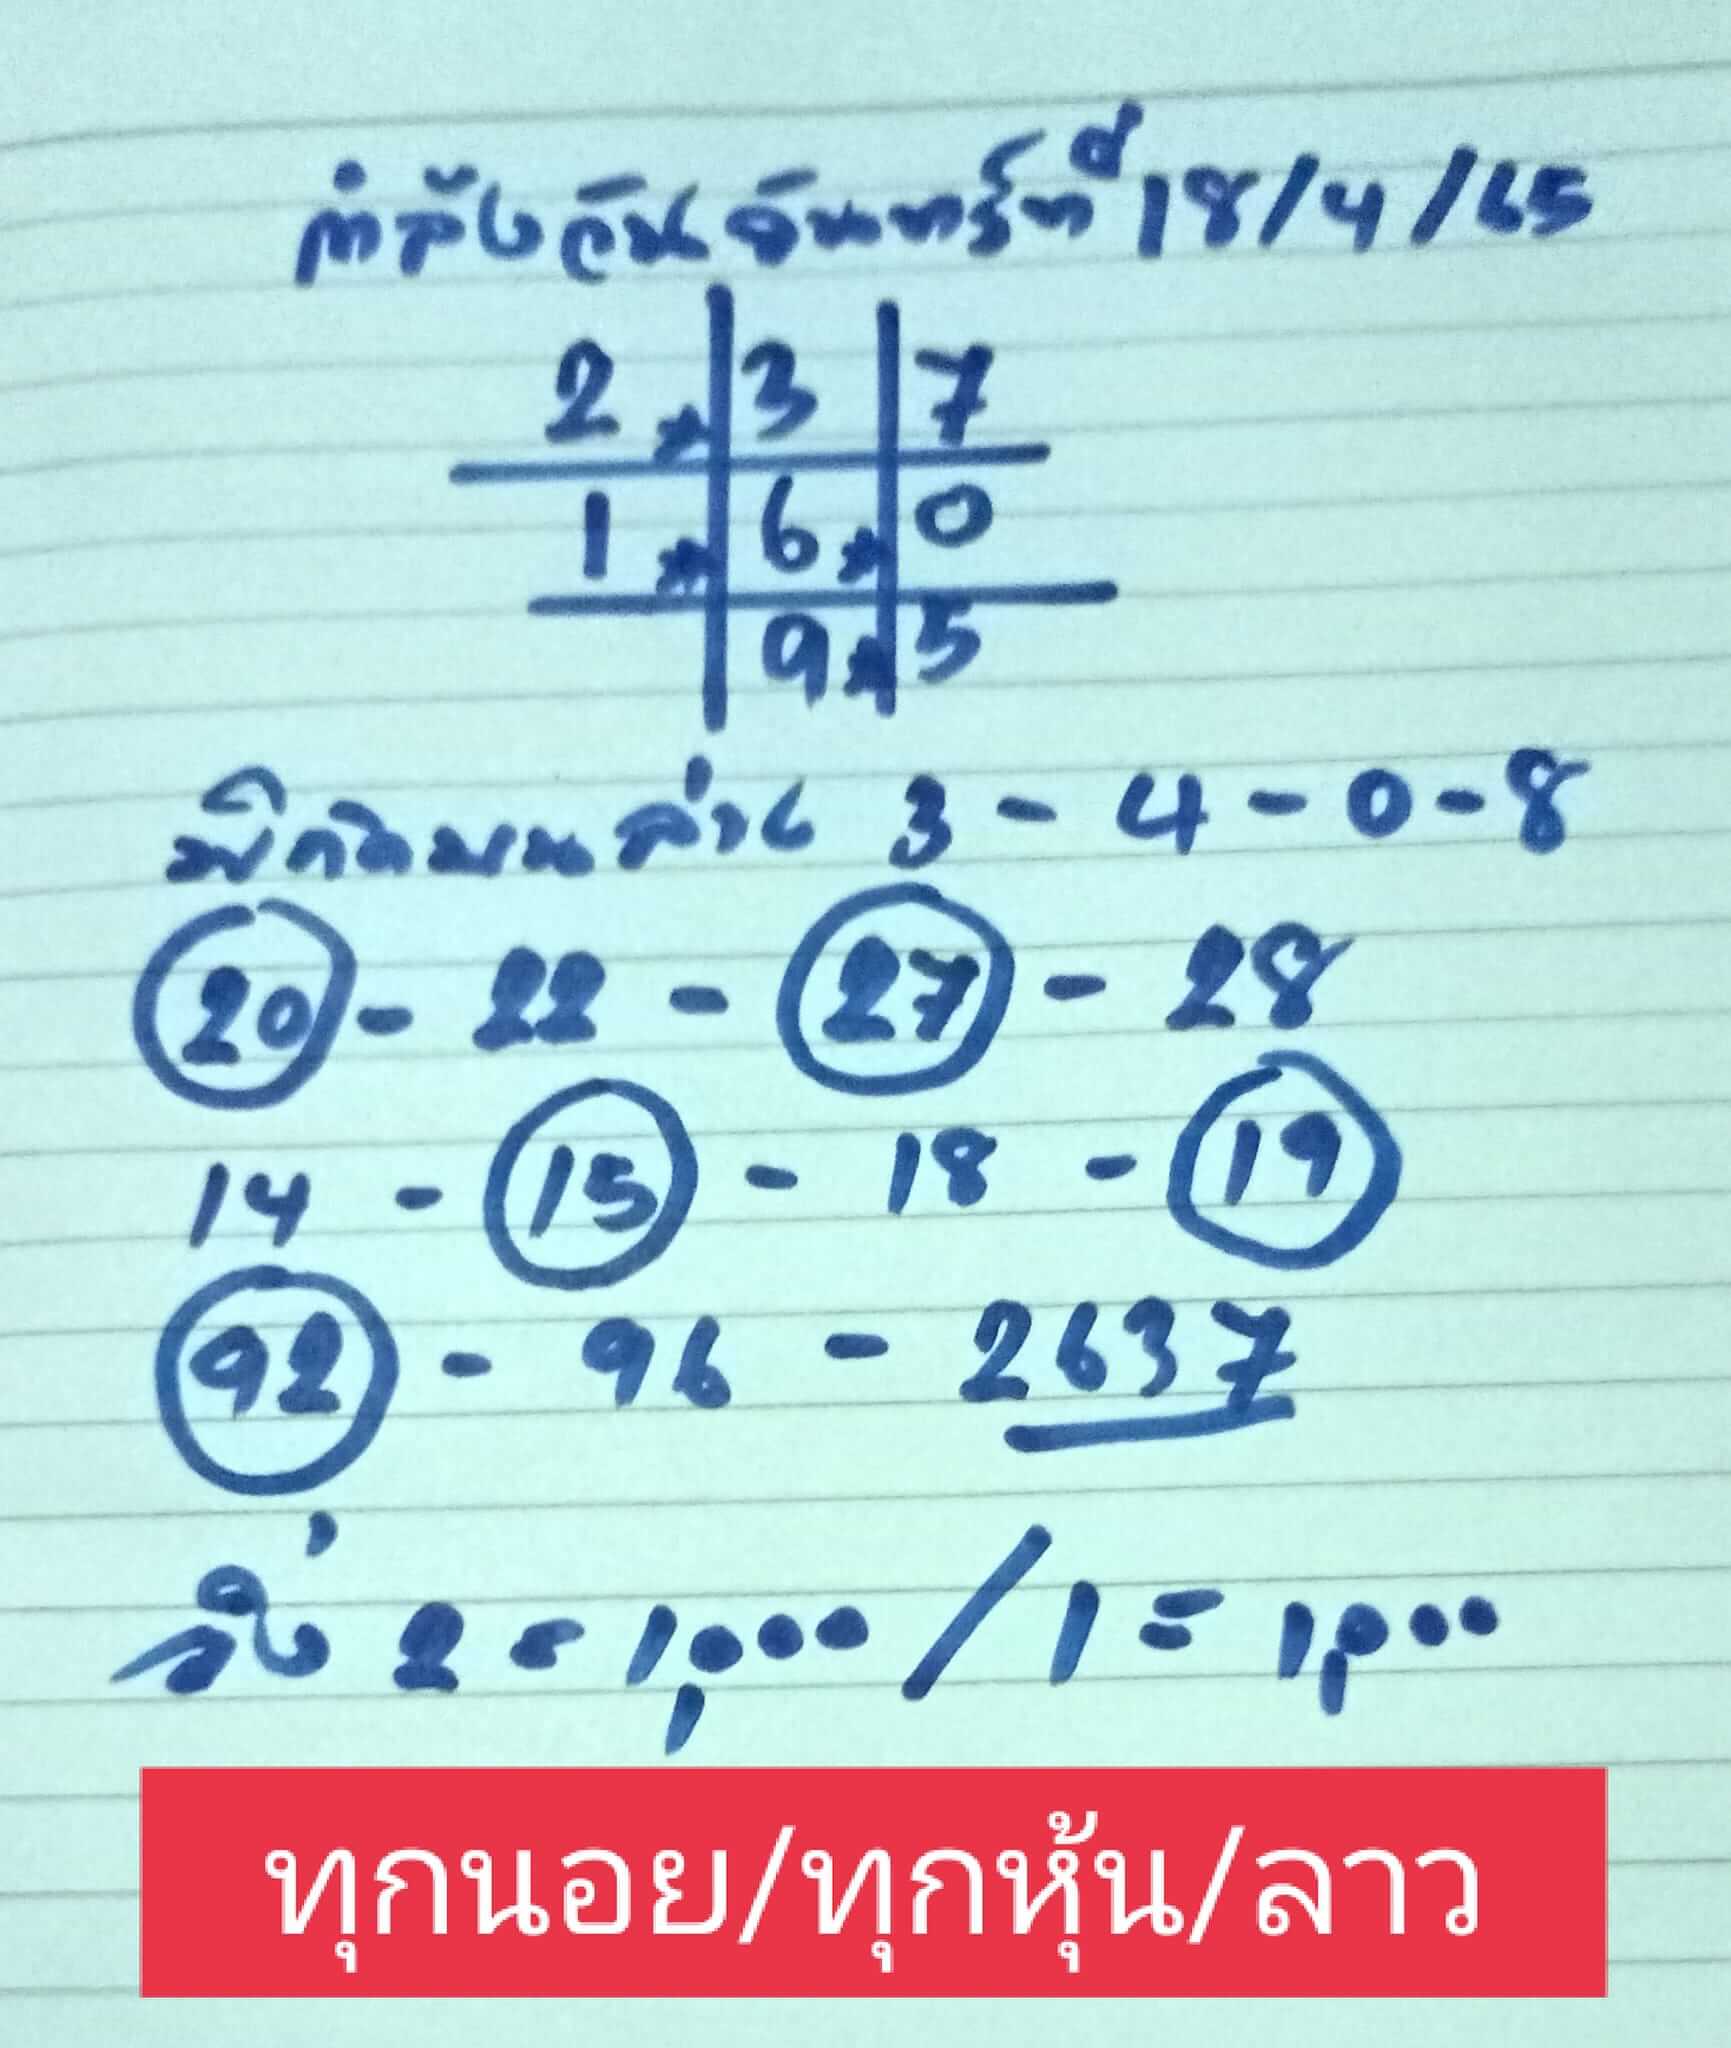 กำลังวันจันทร์ที่ 18/4/65
2 * 3 7
1 * 6 * 0
9 * 5
พิกัดบนล่าง 3 - 4 - 0 - 8
20 - 22 - 27 - 28
14 - 15 - 18 - 19
92 - 96 - 2637
วิ่ง 2 = 1,000 / 1 = 1,000
ทุกนอย/ทุกหุ้น/ลาว